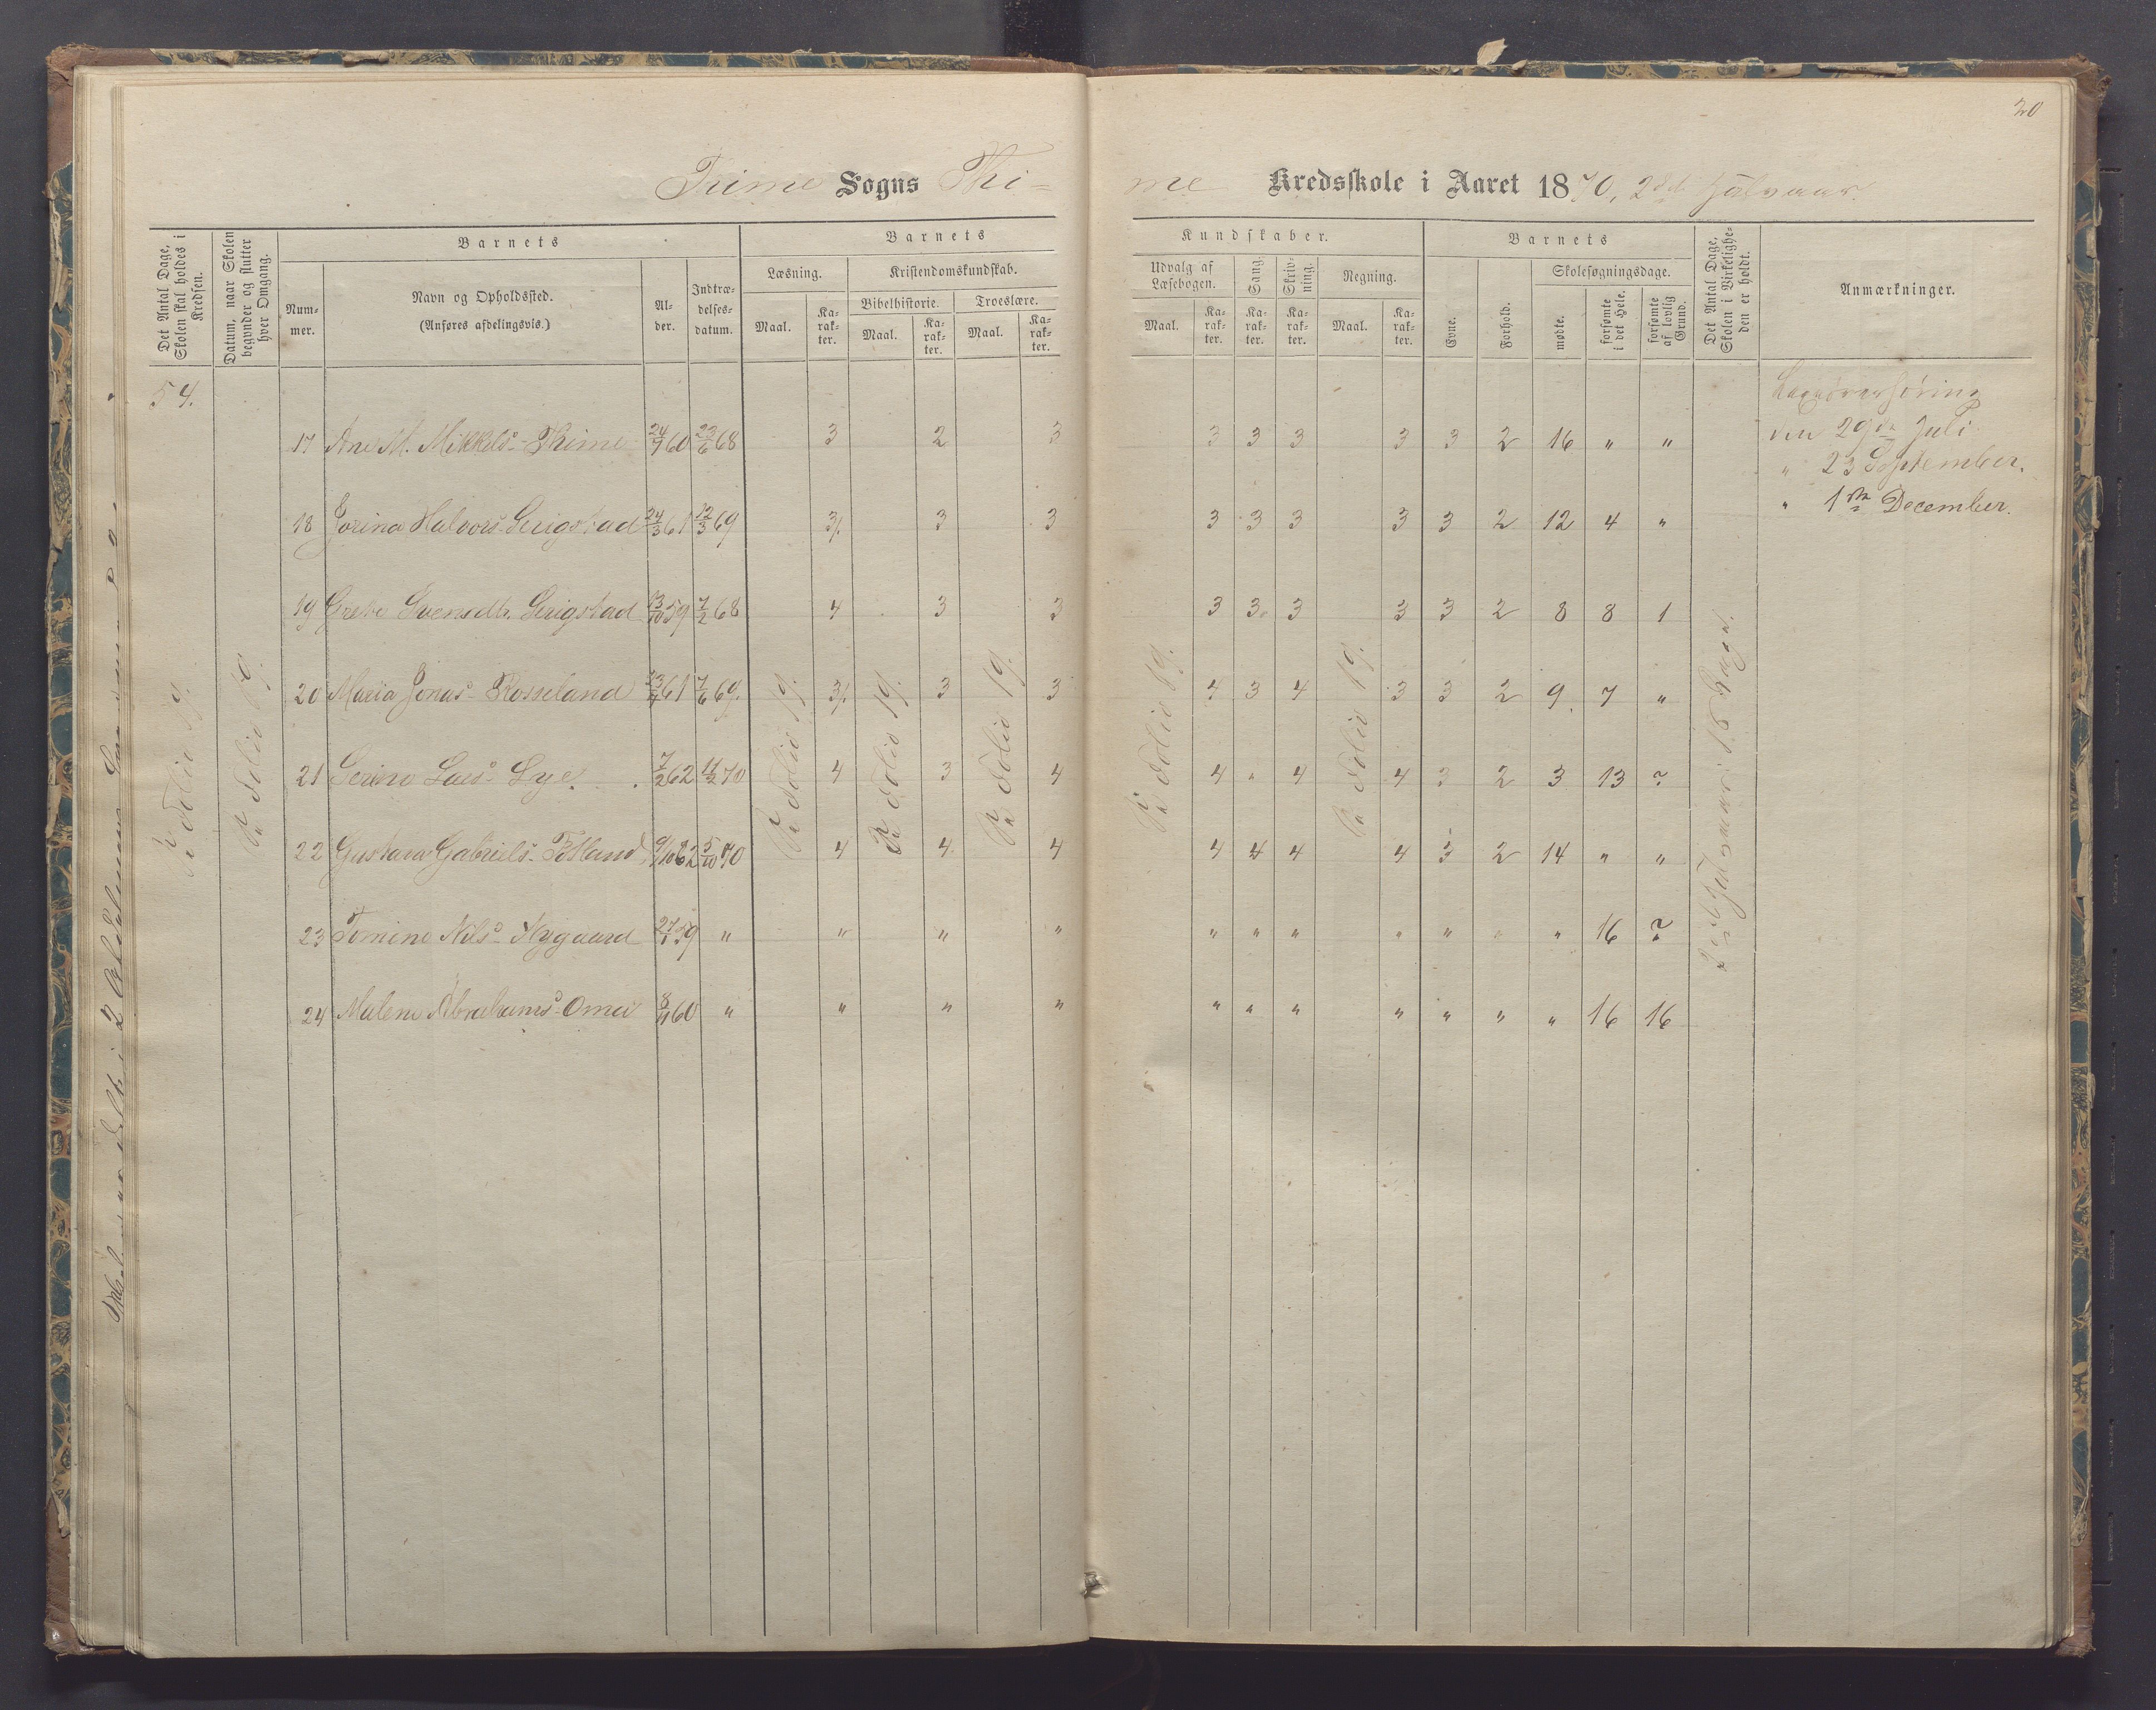 20
Time Sogns Thi-
me Kredsskole i Aaret 1870, 2det Halvaar.
Det Antal Dage, Skolen skal holdes i Kredsen.
Datum, naar Skolen begynder og slutter hver Omgang.
Barnets
Nummer.
Navn og Opholdssted.
(Anføres afdelingsvis.)
Alder.
Indtrædelsesdatum.
Barnets
Læsning.
Kristendomskundskab.
Bibelhistorie.
Troeslære.
Maal. Karakter. Maal. Karakter. Maal. Karakter.
Kundskaber.
Udvalg af Læsebogen.
Sang.
Skrivning.
Regning.
Maal. Karakter. Karakter. Karakter. Maal. Karakter.
Barnets
Evne.
Forhold.
Skolesøgningsdage.
mødte.
forsømte i det Hele.
forsømte af lovlig Grund.
Det Antal Dage, Skolen i Virkeligheden er holdt.
Anmærkninger.
54.
17 Ane M. Mikkelsd. Thime 24/7 60 23/6 68 3 2 3 3 3 3 3 3 2 16 " "
18 Jorina Halvorsd. Serigstad 24/3 61 12/3 69 3/. 3 3 3 3 3 3 3 2 12 4 "
19 Grete Svensdtr. Serigstad 13/10 59 7/2 68 4 3 3 3 3 3 3 3 2 8 8 1
20 Maria Jonasd. Rosseland 13/7 61 7/6 69. 3/. 3 3 4 3 4 3 3 2 9 7 "
21 Serine Larsd. Lye. 7/2 62 11/2 70 4 3 4 4 " 4 4 3 2 3 13 ?
22 Gustava Gabrielsd. Fotland 9/10 62 5/10 70 4 4 4 4 4 4 4 3 2 14 " "
23 Tomine Nilsd. Nygaard 27/1 59 " " " " " " " " " " " 16 ?
24 Malene Abrahamsd. Omei 8/11 60 " " " " " " " " " " " 16 16
Pa Folio 19.
Pa Folio 19.
Pa Folio 19.
Pa Folio 19.
Pa Folio 19.
Pa Folio 19.
Pa Folio 19.
2det Halvaar: 16 Dage.
den 29de Juli
" 23 September.
" 1ste December.